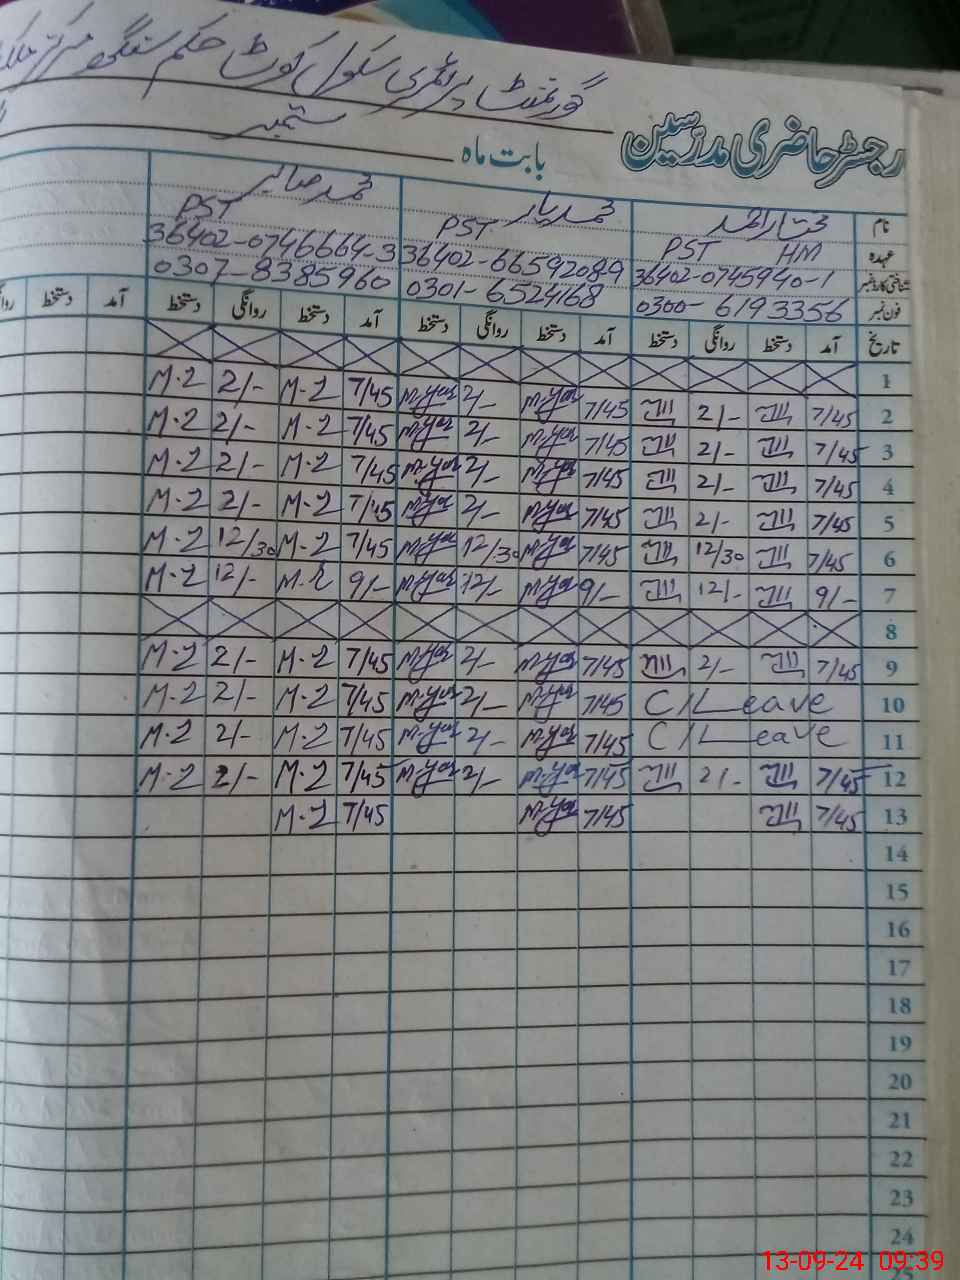 گورنمنٹ پرائمری سکول کوٹ حکم سنگھ مرکز
رجسٹر حاضری مدرسین
بابت ماہ ستمبر
نام مختار احمد محمد یار محمد صابر
عہدہ PST HM PST PST
شناختی کارڈ نمبر 36402-0745940-1 36402-66592089 36402-0746664-3
فون نمبر 0300-6193356 0301-6524168 0307-8385960
تاریخ آمد دستخط روانگی دستخط آمد دستخط روانگی دستخط آمد دستخط روانگی دستخط آمد دستخط روانگی
1
2 7/45 2/- 7/45 M-Yar 2/- M-Yar 7/45 M-2 2/- M-2
3 7/45 2/- 7/45 M-Yar 2/- M-Yar 7/45 M-2 2/- M-2
4 7/45 2/- 7/45 M-Yar 2/- M-Yar 7/45 M-2 2/- M-2
5 7/45 2/- 7/45 M-Yar 2/- M-Yar 7/45 M-2 2/- M-2
6 7/45 12/30 7/45 M-Yar 12/30 M-Yar 7/45 M-2 12/30 M-2
7 9/- 12/- 9/- M-Yar 12/- M-Yar 9/- M-2 12/- M-2
8
9 7/45 2/- 7/45 M-Yar 2/- M-Yar 7/45 M-2 2/- M-2
10 C/Leave 7/45 M-Yar 2/- M-Yar 7/45 M-2 2/- M-2
11 C/Leave 7/45 M-Yar 2/- M-Yar 7/45 M-2 2/- M-2
12 7/45 2/- 7/45 M-Yar 2/- M-Yar 7/45 M-2 2/- M-2
13 7/45 7/45 M-Yar 7/45 M-2
14
15
16
17
18
19
20
21
22
23
24
25
13-09-24 09:39